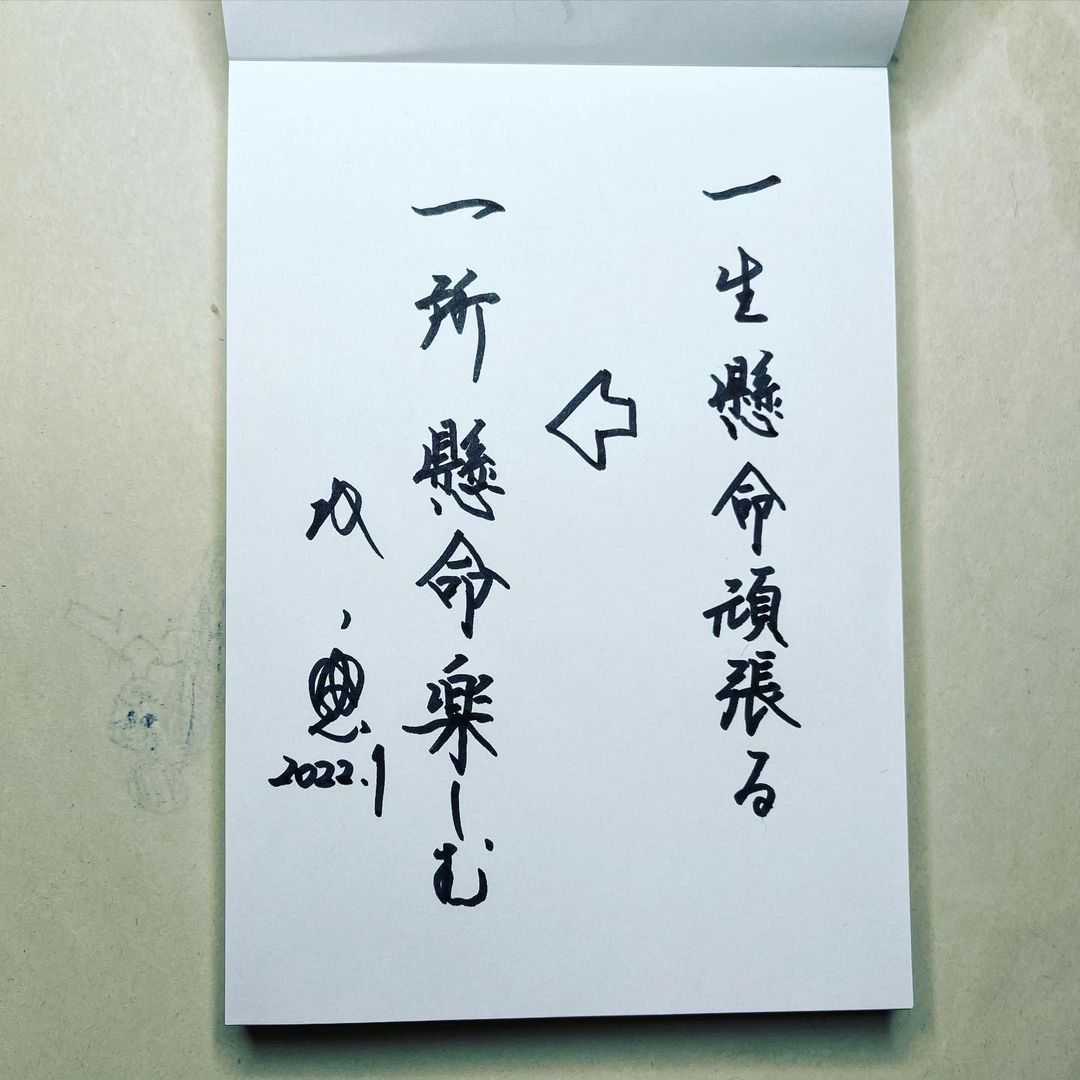 一生懸命頑張る
一所懸命楽しむ
2022.1